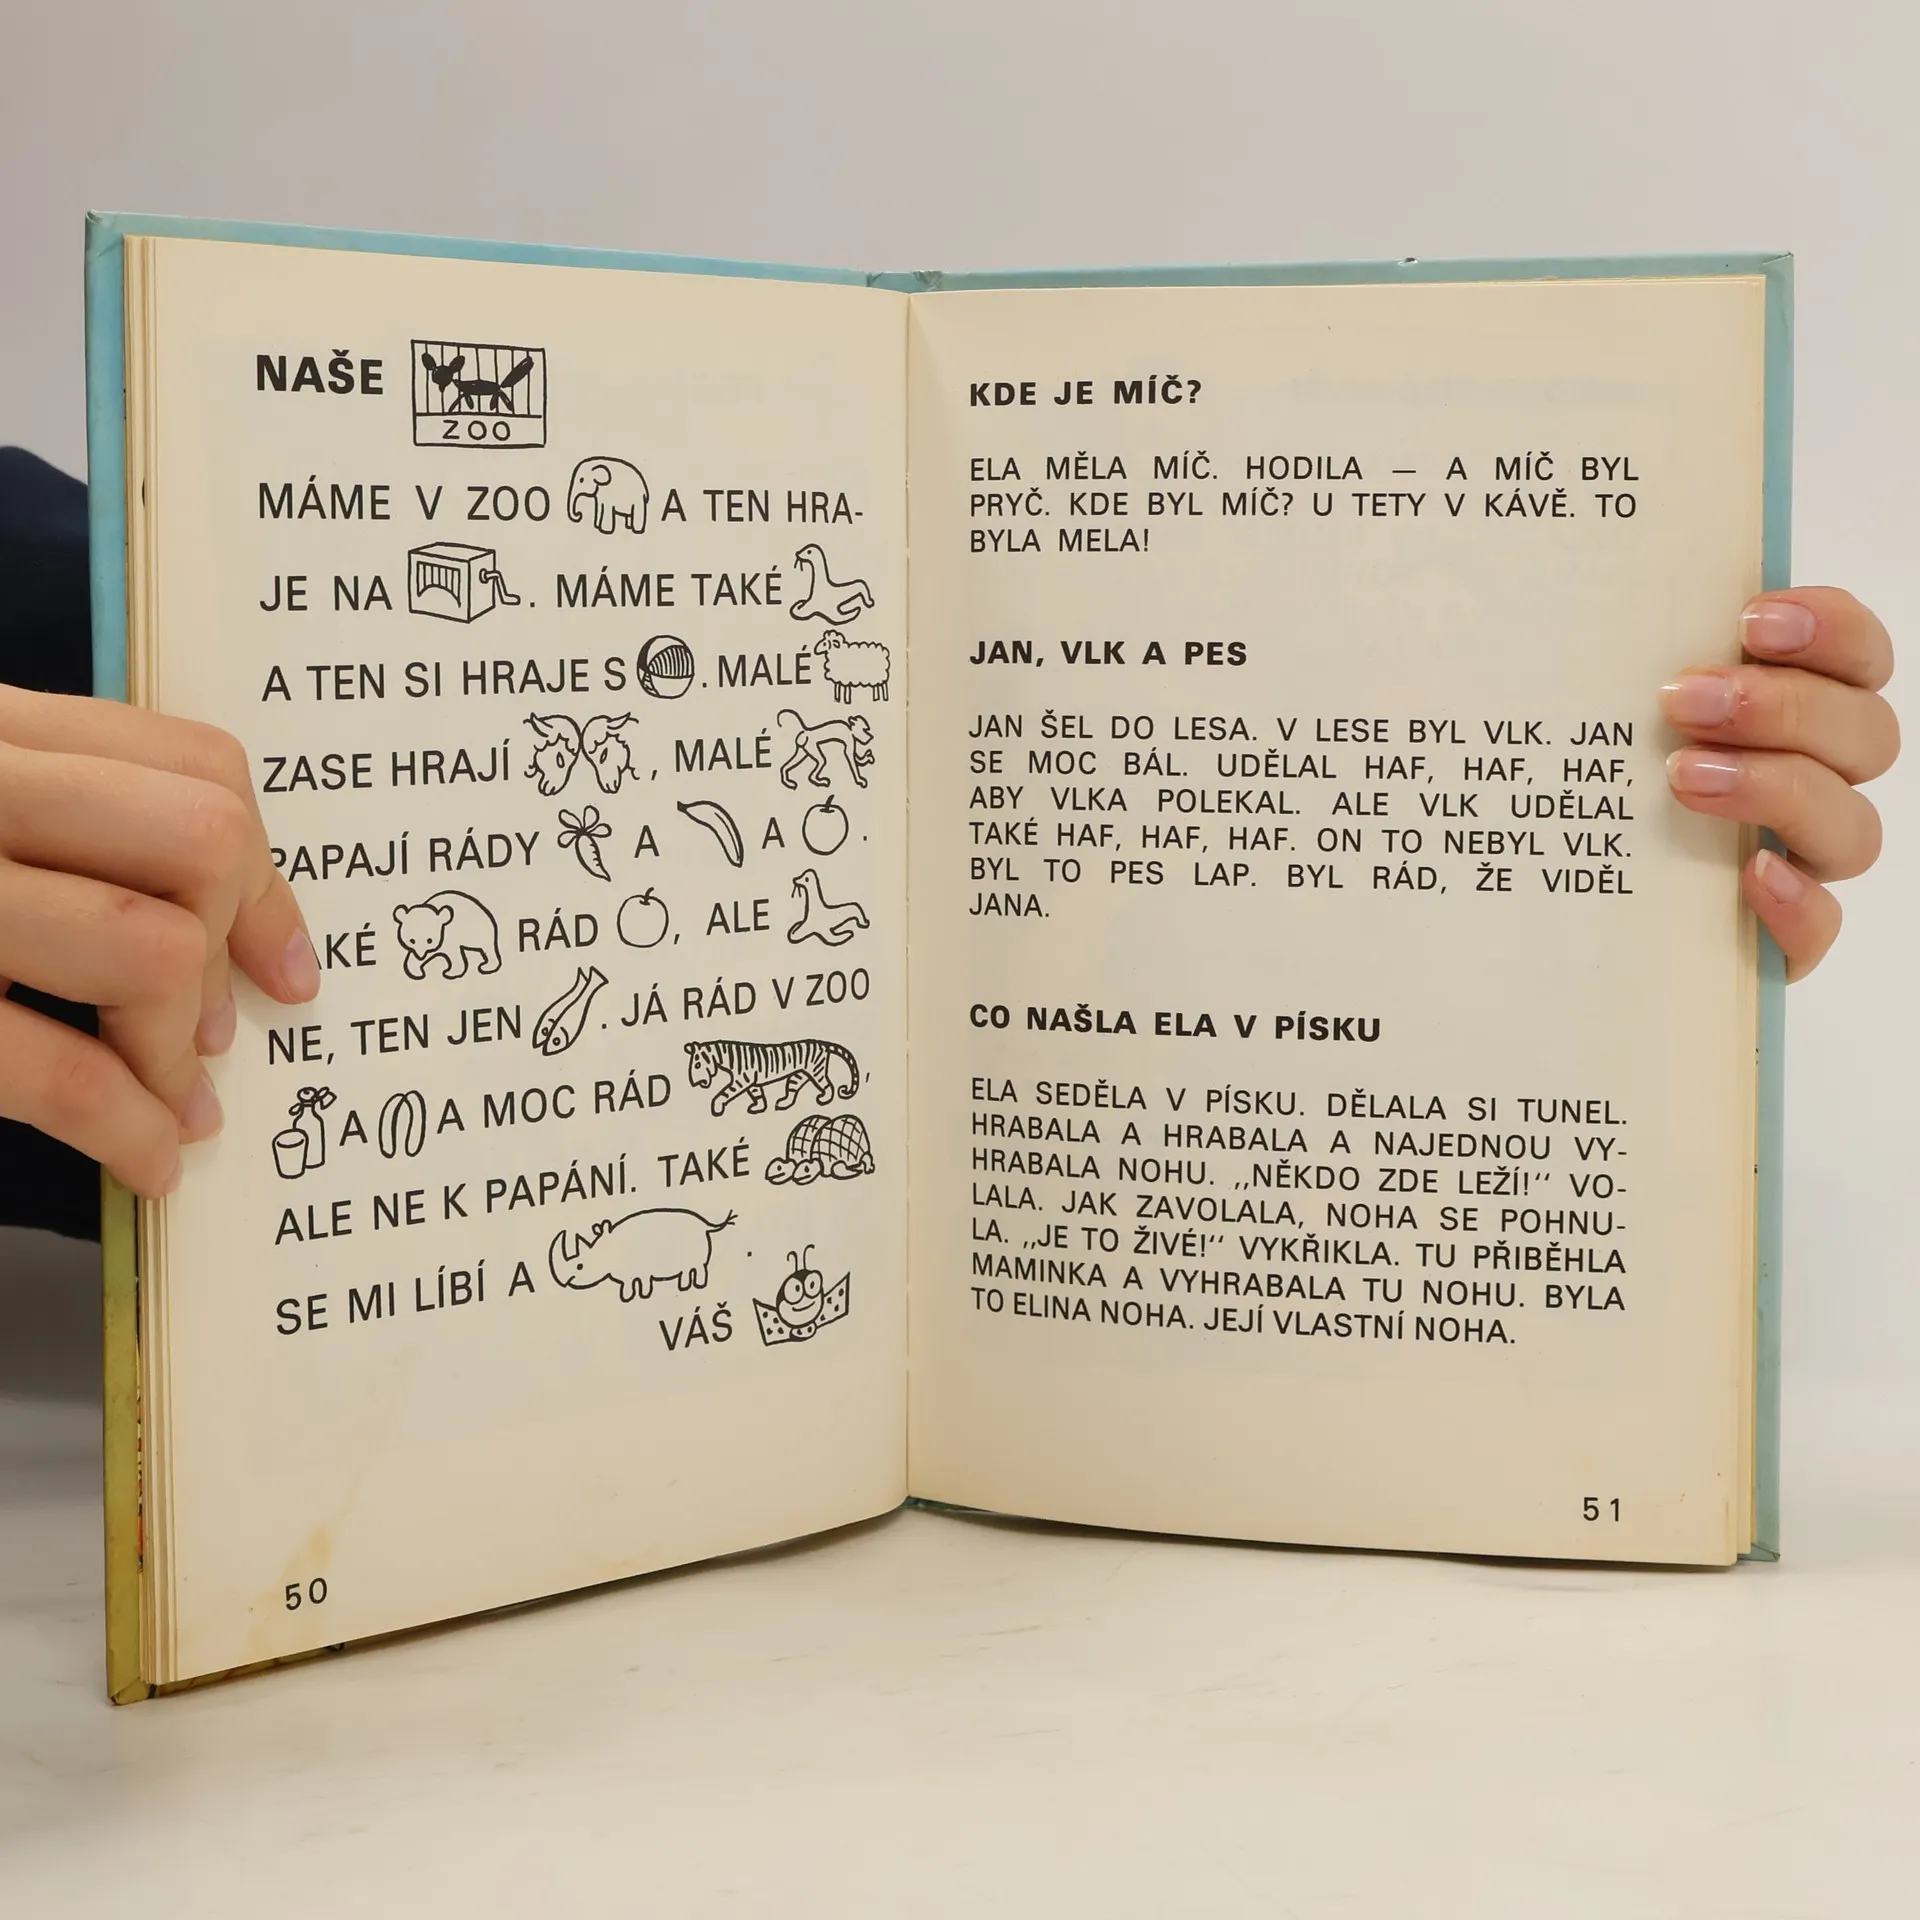 NAŠE
ZOO
MÁME V ZOO A TEN HRA-
JE NA . MÁME TAKÉ
A TEN SI HRAJE S . MALÉ
ZASE HRAJÍ , MALÉ
PAPAJÍ RÁDY A A .
RÁD , ALE
NE, TEN JEN . JÁ RÁD V ZOO
A A MOC RÁD ,
ALE NE K PAPÁNÍ. TAKÉ
SE MI LÍBÍ A .
VÁŠ
50
KDE JE MÍČ?
ELA MĚLA MÍČ. HODILA — A MÍČ BYL
PRYČ. KDE BYL MÍČ? U TETY V KÁVĚ. TO
BYLA MELA!
JAN, VLK A PES
JAN ŠEL DO LESA. V LESE BYL VLK. JAN
SE MOC BÁL. UDĚLAL HAF, HAF, HAF,
ABY VLKA POLEKAL. ALE VLK UDĚLAL
TAKÉ HAF, HAF, HAF. ON TO NEBYL VLK.
BYL TO PES LAP. BYL RÁD, ŽE VIDĚL
JANA.
CO NAŠLA ELA V PÍSKU
ELA SEDĚLA V PÍSKU. DĚLALA SI TUNEL.
HRABALA A HRABALA A NAJEDNOU VY-
HRABALA NOHU. „NĚKDO ZDE LEŽÍ!“ VO-
LALA. JAK ZAVOLALA, NOHA SE POHNU-
LA. „JE TO ŽIVÉ!“ VYKŘIKLA. TU PŘIBĚHLA
MAMINKA A VYHRABALA TU NOHU. BYLA
TO ELINA NOHA. JEJÍ VLASTNÍ NOHA.
51